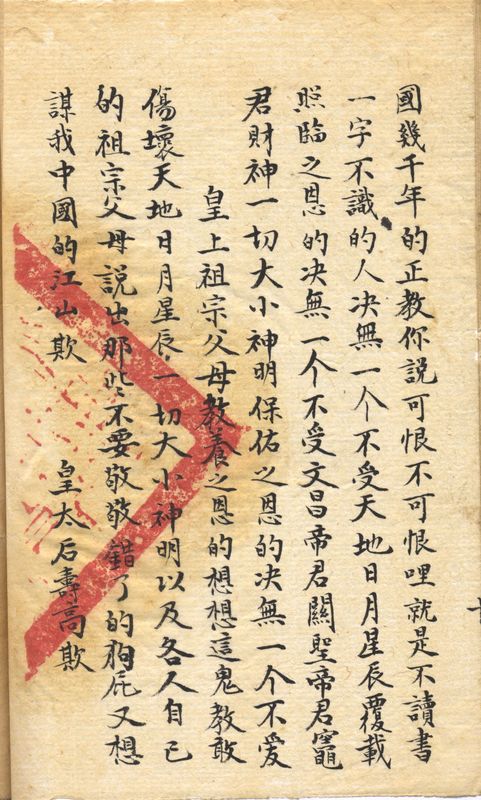 國幾千年的正教你說可恨不可恨哩就是不讀書
一字不識的人决無一个不受天地日月星辰覆載
照臨之恩的决無一个不受文昌帝君關聖帝君竈
君財神一切大小神明保佑之恩的决無一个不受
皇上祖宗父母教養之恩的想想這鬼教敢
傷壞天地日月星辰一切大小神明以及各人自己
的祖宗父母說出那些不要敬敬錯了的狗屁又想
謀我中國的江山欺 皇太后壽高欺